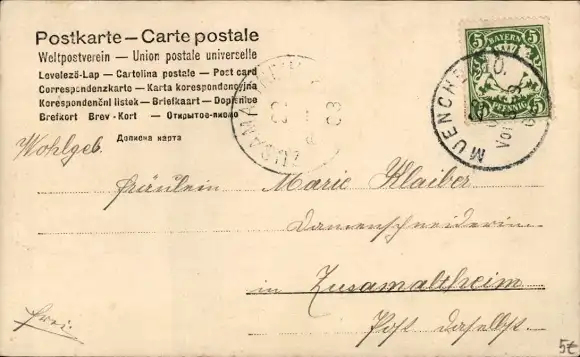 Postkarte — Carte postale
Weltpostverein — Union postale universelle
Levelező-Lap — Cartolina postale — Post card
Correspondenzkarte — Karta korespondencyjna
Korespondenční listek — Briefkaart — Dopisnice
Brefkort Brev-Kort — Открытое письмо
Дописна карта
5 BAYERN 5
5 PFENNIG 5
MUENCHEN 10.
Vor
ZUSAMALTHEIM
Wohlgeb.
Fräulein Marie Klaiber
Damenschneiderin
in Zusamaltheim
Post daselbst.
frei.
5€